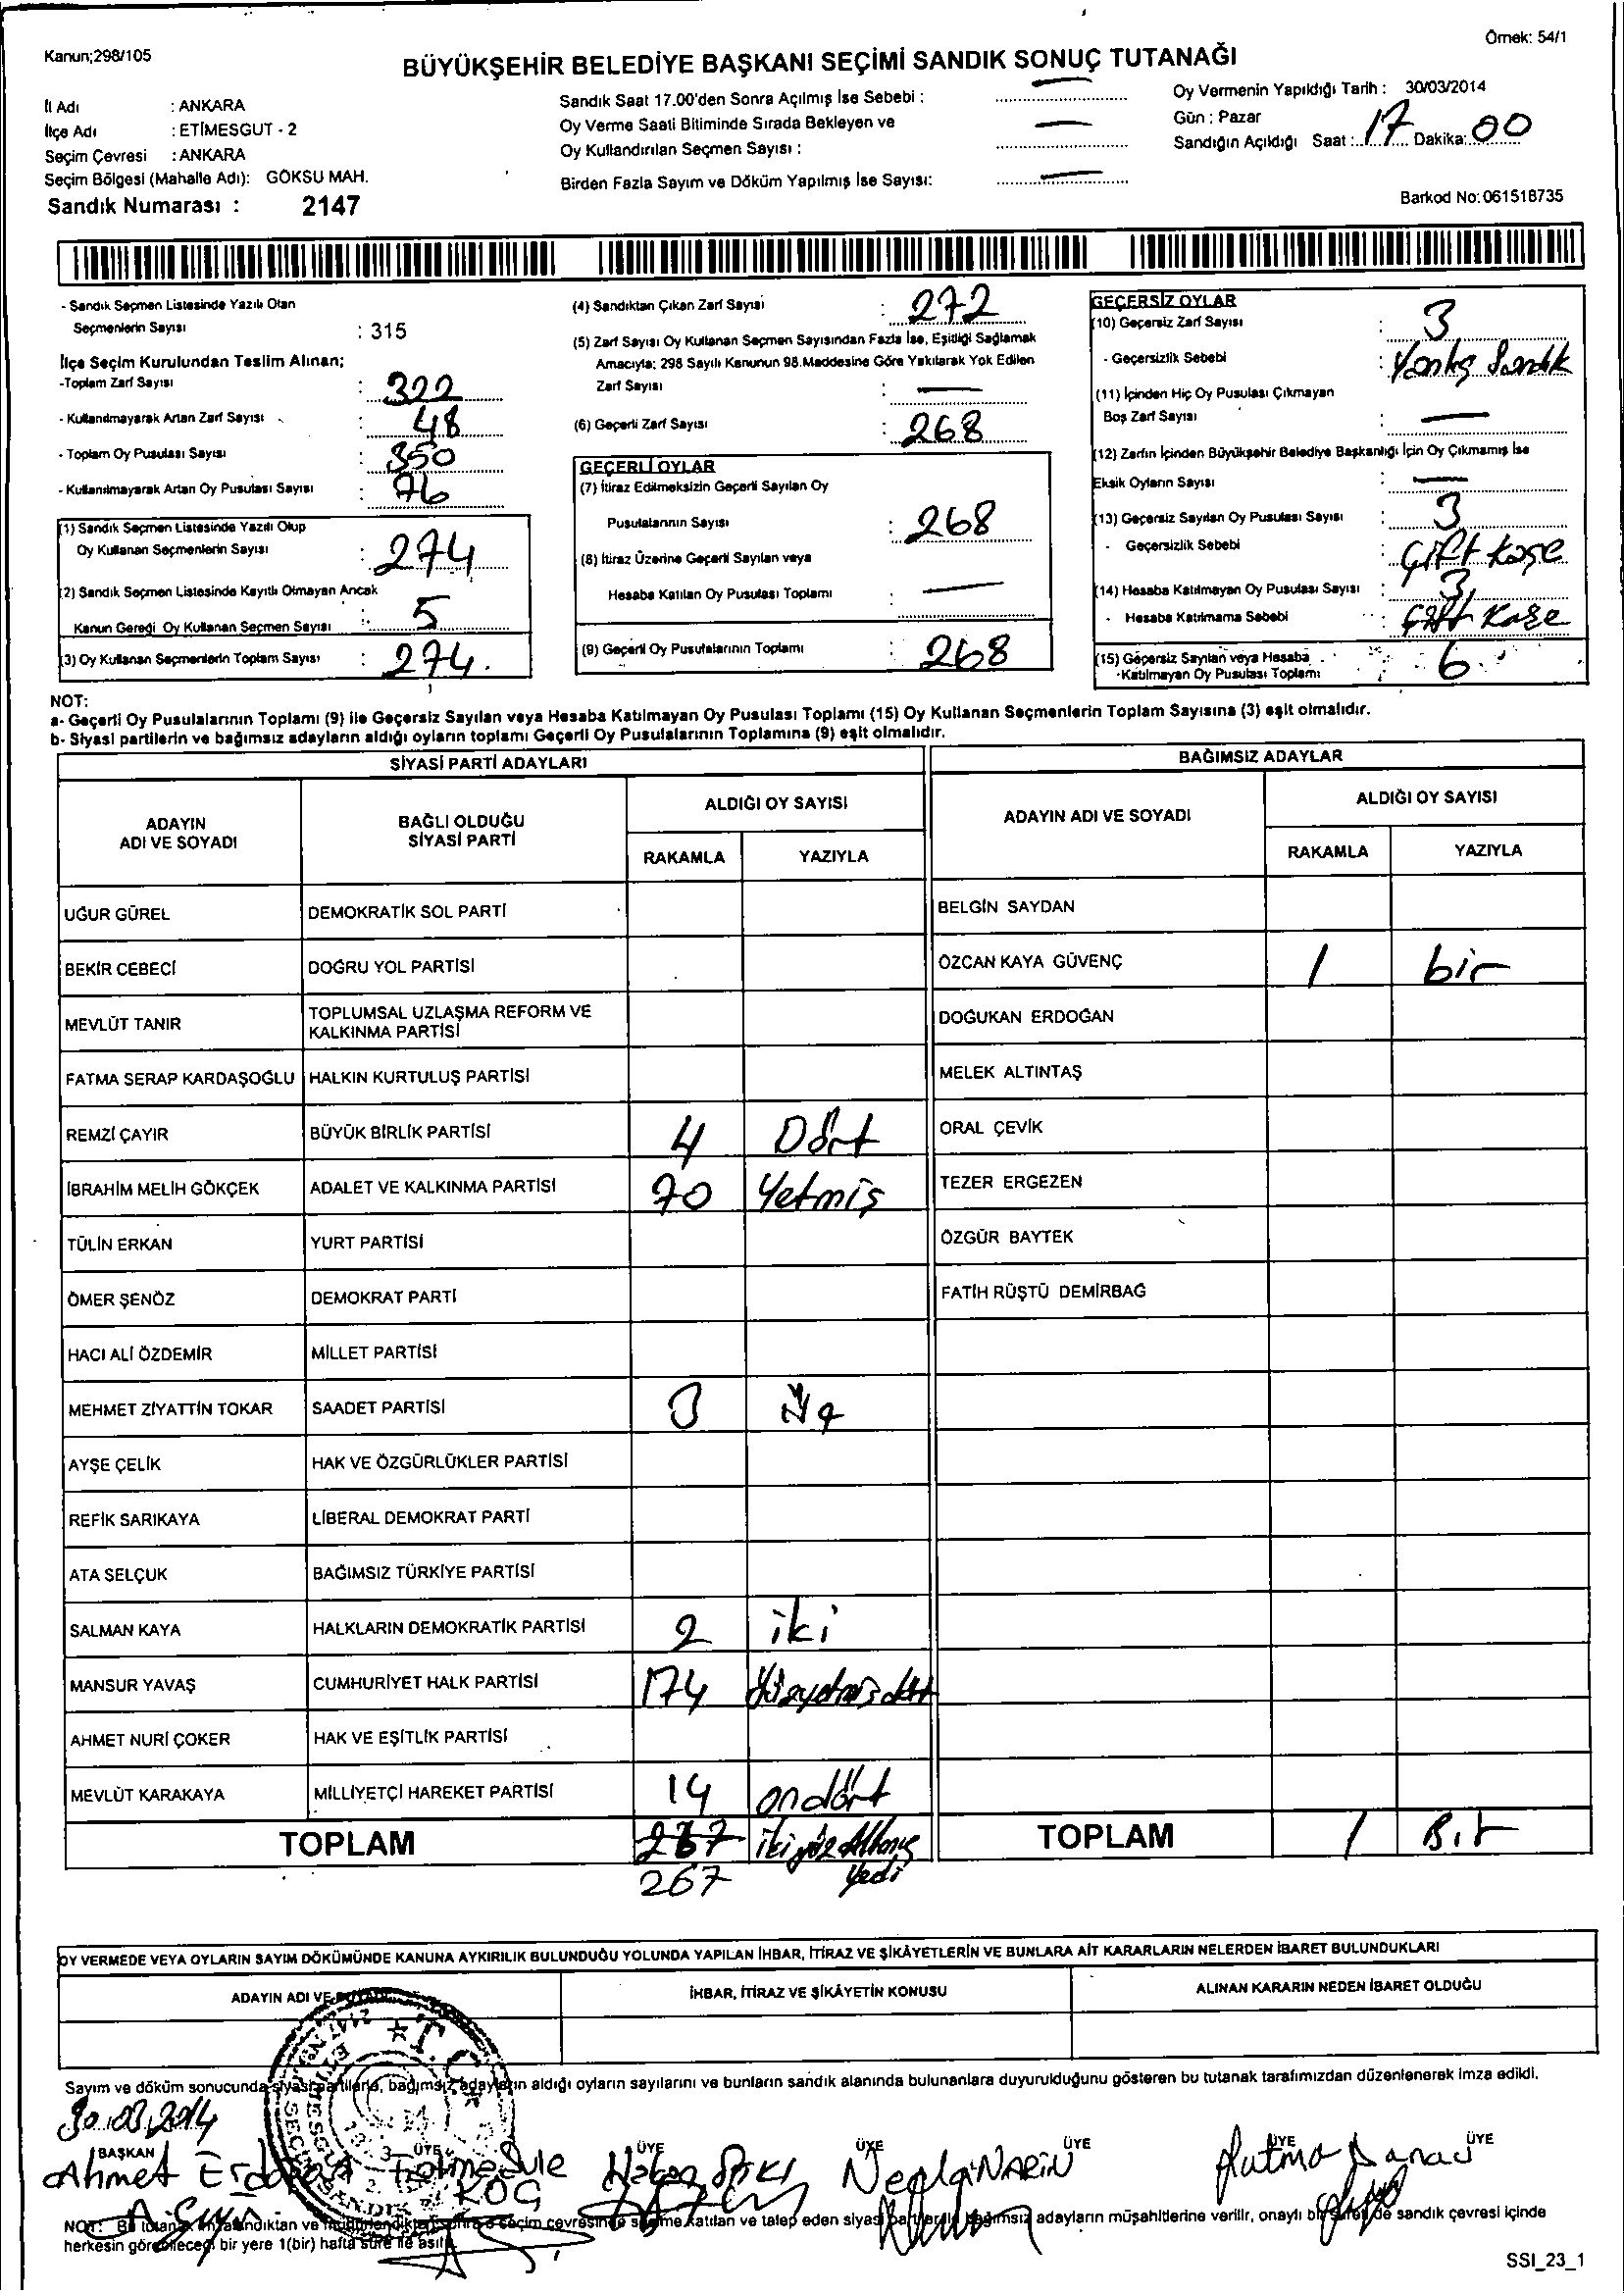 Kanun;298/105
Örnek: 54/1
BÜYÜKŞEHİR BELEDİYE BAŞKANI SEÇİMİ SANDIK SONUÇ TUTANAĞI
İl Adı : ANKARA
İlçe Adı : ETİMESGUT - 2
Seçim Çevresi : ANKARA
Seçim Bölgesi (Mahalle Adı): GÖKSU MAH.
Sandık Numarası : 2147
Sandık Saat 17.00'den Sonra Açılmış İse Sebebi : —
Oy Verme Saati Bitiminde Sırada Bekleyen ve
Oy Kullandırılan Seçmen Sayısı : —
Birden Fazla Sayım ve Döküm Yapılmış İse Sayısı: —
Oy Vermenin Yapıldığı Tarih : 30/03/2014
Gün : Pazar
Sandığın Açıldığı Saat : 17 Dakika: 00
Barkod No: 061518735
- Sandık Seçmen Listesinde Yazılı Olan
Seçmenlerin Sayısı : 315
İlçe Seçim Kurulundan Teslim Alınan;
-Toplam Zarf Sayısı : 322
- Kullanılmayarak Artan Zarf Sayısı : 48
- Toplam Oy Pusulası Sayısı : 350
- Kullanılmayarak Artan Oy Pusulası Sayısı : 76
(1) Sandık Seçmen Listesinde Yazılı Olup
Oy Kullanan Seçmenlerin Sayısı : 274
(2) Sandık Seçmen Listesinde Kayıtlı Olmayan Ancak
Kanun Gereği Oy Kullanan Seçmen Sayısı : 5
(3) Oy Kullanan Seçmenlerin Toplam Sayısı : 274.
(4) Sandıktan Çıkan Zarf Sayısı : 272
(5) Zarf Sayısı Oy Kullanan Seçmen Sayısından Fazla İse, Eşitliği Sağlamak
Amacıyla; 298 Sayılı Kanunun 98.Maddesine Göre Yakılarak Yok Edilen
Zarf Sayısı : —
(6) Geçerli Zarf Sayısı : 268
GEÇERLİ OYLAR
(7) İtiraz Edilmeksizin Geçerli Sayılan Oy
Pusulalarının Sayısı : 268
(8) İtiraz Üzerine Geçerli Sayılan veya
Hesaba Katılan Oy Pusulası Toplamı : —
(9) Geçerli Oy Pusulalarının Toplamı : 268
GEÇERSİZ OYLAR
(10) Geçersiz Zarf Sayısı : 3
- Geçersizlik Sebebi : Yanlış Sandık
(11) İçinden Hiç Oy Pusulası Çıkmayan
Boş Zarf Sayısı : —
(12) Zarfın İçinden Büyükşehir Belediye Başkanlığı İçin Oy Çıkmamış İse
Eksik Oyların Sayısı : —
(13) Geçersiz Sayılan Oy Pusulası Sayısı : 3
- Geçersizlik Sebebi : Çift Kaşe
(14) Hesaba Katılmayan Oy Pusulası Sayısı : 3
- Hesaba Katılmama Sebebi : Çift Kaşe
(15) Geçersiz Sayılan veya Hesaba
Katılmayan Oy Pusulası Toplamı : 6
NOT:
a- Geçerli Oy Pusulalarının Toplamı (9) ile Geçersiz Sayılan veya Hesaba Katılmayan Oy Pusulası Toplamı (15) Oy Kullanan Seçmenlerin Toplam Sayısına (3) eşit olmalıdır.
b- Siyasi partilerin ve bağımsız adayların aldığı oyların toplamı Geçerli Oy Pusulalarının Toplamına (9) eşit olmalıdır.
SİYASİ PARTİ ADAYLARI
ADAYIN ADI VE SOYADI BAĞLI OLDUĞU SİYASİ PARTİ ALDIĞI OY SAYISI
RAKAMLA YAZIYLA
UĞUR GÜREL DEMOKRATİK SOL PARTİ
BEKİR CEBECİ DOĞRU YOL PARTİSİ
MEVLÜT TANIR TOPLUMSAL UZLAŞMA REFORM VE KALKINMA PARTİSİ
FATMA SERAP KARDAŞOĞLU HALKIN KURTULUŞ PARTİSİ
REMZİ ÇAYIR BÜYÜK BİRLİK PARTİSİ 4 Dört
İBRAHİM MELİH GÖKÇEK ADALET VE KALKINMA PARTİSİ 70 Yetmiş
TÜLİN ERKAN YURT PARTİSİ
ÖMER ŞENÖZ DEMOKRAT PARTİ
HACI ALİ ÖZDEMİR MİLLET PARTİSİ
MEHMET ZİYATTİN TOKAR SAADET PARTİSİ 3 Üç
AYŞE ÇELİK HAK VE ÖZGÜRLÜKLER PARTİSİ
REFİK SARIKAYA LİBERAL DEMOKRAT PARTİ
ATA SELÇUK BAĞIMSIZ TÜRKİYE PARTİSİ
SALMAN KAYA HALKLARIN DEMOKRATİK PARTİSİ 2 iki
MANSUR YAVAŞ CUMHURİYET HALK PARTİSİ 174 Yüzyetmişdört
AHMET NURİ ÇOKER HAK VE EŞİTLİK PARTİSİ
MEVLÜT KARAKAYA MİLLİYETÇİ HAREKET PARTİSİ 14 ondört
TOPLAM 267 ikiyüz Altmış
267 Yedi
BAĞIMSIZ ADAYLAR
ADAYIN ADI VE SOYADI ALDIĞI OY SAYISI
RAKAMLA YAZIYLA
BELGİN SAYDAN
ÖZCAN KAYA GÜVENÇ 1 bir
DOĞUKAN ERDOĞAN
MELEK ALTINTAŞ
ORAL ÇEVİK
TEZER ERGEZEN
ÖZGÜR BAYTEK
FATİH RÜŞTÜ DEMİRBAĞ
TOPLAM 1 Bir
OY VERMEDE VEYA OYLARIN SAYIM DÖKÜMÜNDE KANUNA AYKIRILIK BULUNDUĞU YOLUNDA YAPILAN İHBAR, İTİRAZ VE ŞİKÂYETLERİN VE BUNLARA AİT KARARLARIN NELERDEN İBARET BULUNDUKLARI
ADAYIN ADI VE İHBAR, İTİRAZ VE ŞİKÂYETİN KONUSU ALINAN KARARIN NEDEN İBARET OLDUĞU
Sayım ve döküm sonucunda siyasi partilerin, bağımsız adayların aldığı oyların sayılarını ve bunların sandık alanında bulunanlara duyurulduğunu gösteren bu tutanak tarafımızdan düzenlenerek imza edildi.
30.03.2014
BAŞKAN ÜYE ÜYE ÜYE ÜYE ÜYE ÜYE
Ahmet Fatma Şule Hakan Necla NARİN Fatma
KOÇ
NOT: Bu tutanak ve sonra o seçim çevresinde seçime katılan ve talep eden siyasi bağımsız adayların müşahitlerine verilir, onaylı bir de sandık çevresi içinde
herkesin görebileceği bir yere 1(bir) hafta süre ile asılır.
SSI_23_1